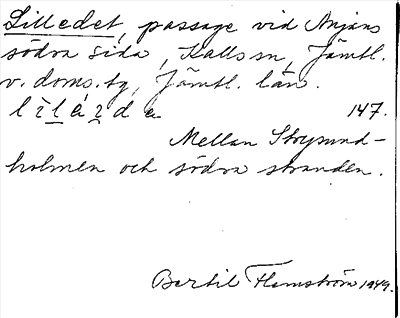 Lilledet, passage vid Anjans
södra sida, Kalls sn, Jämtl.
v. doms.tg, Jämtl. län.
147.
Mellan
holmen och södra stranden.
Bertil Flemström 1949.